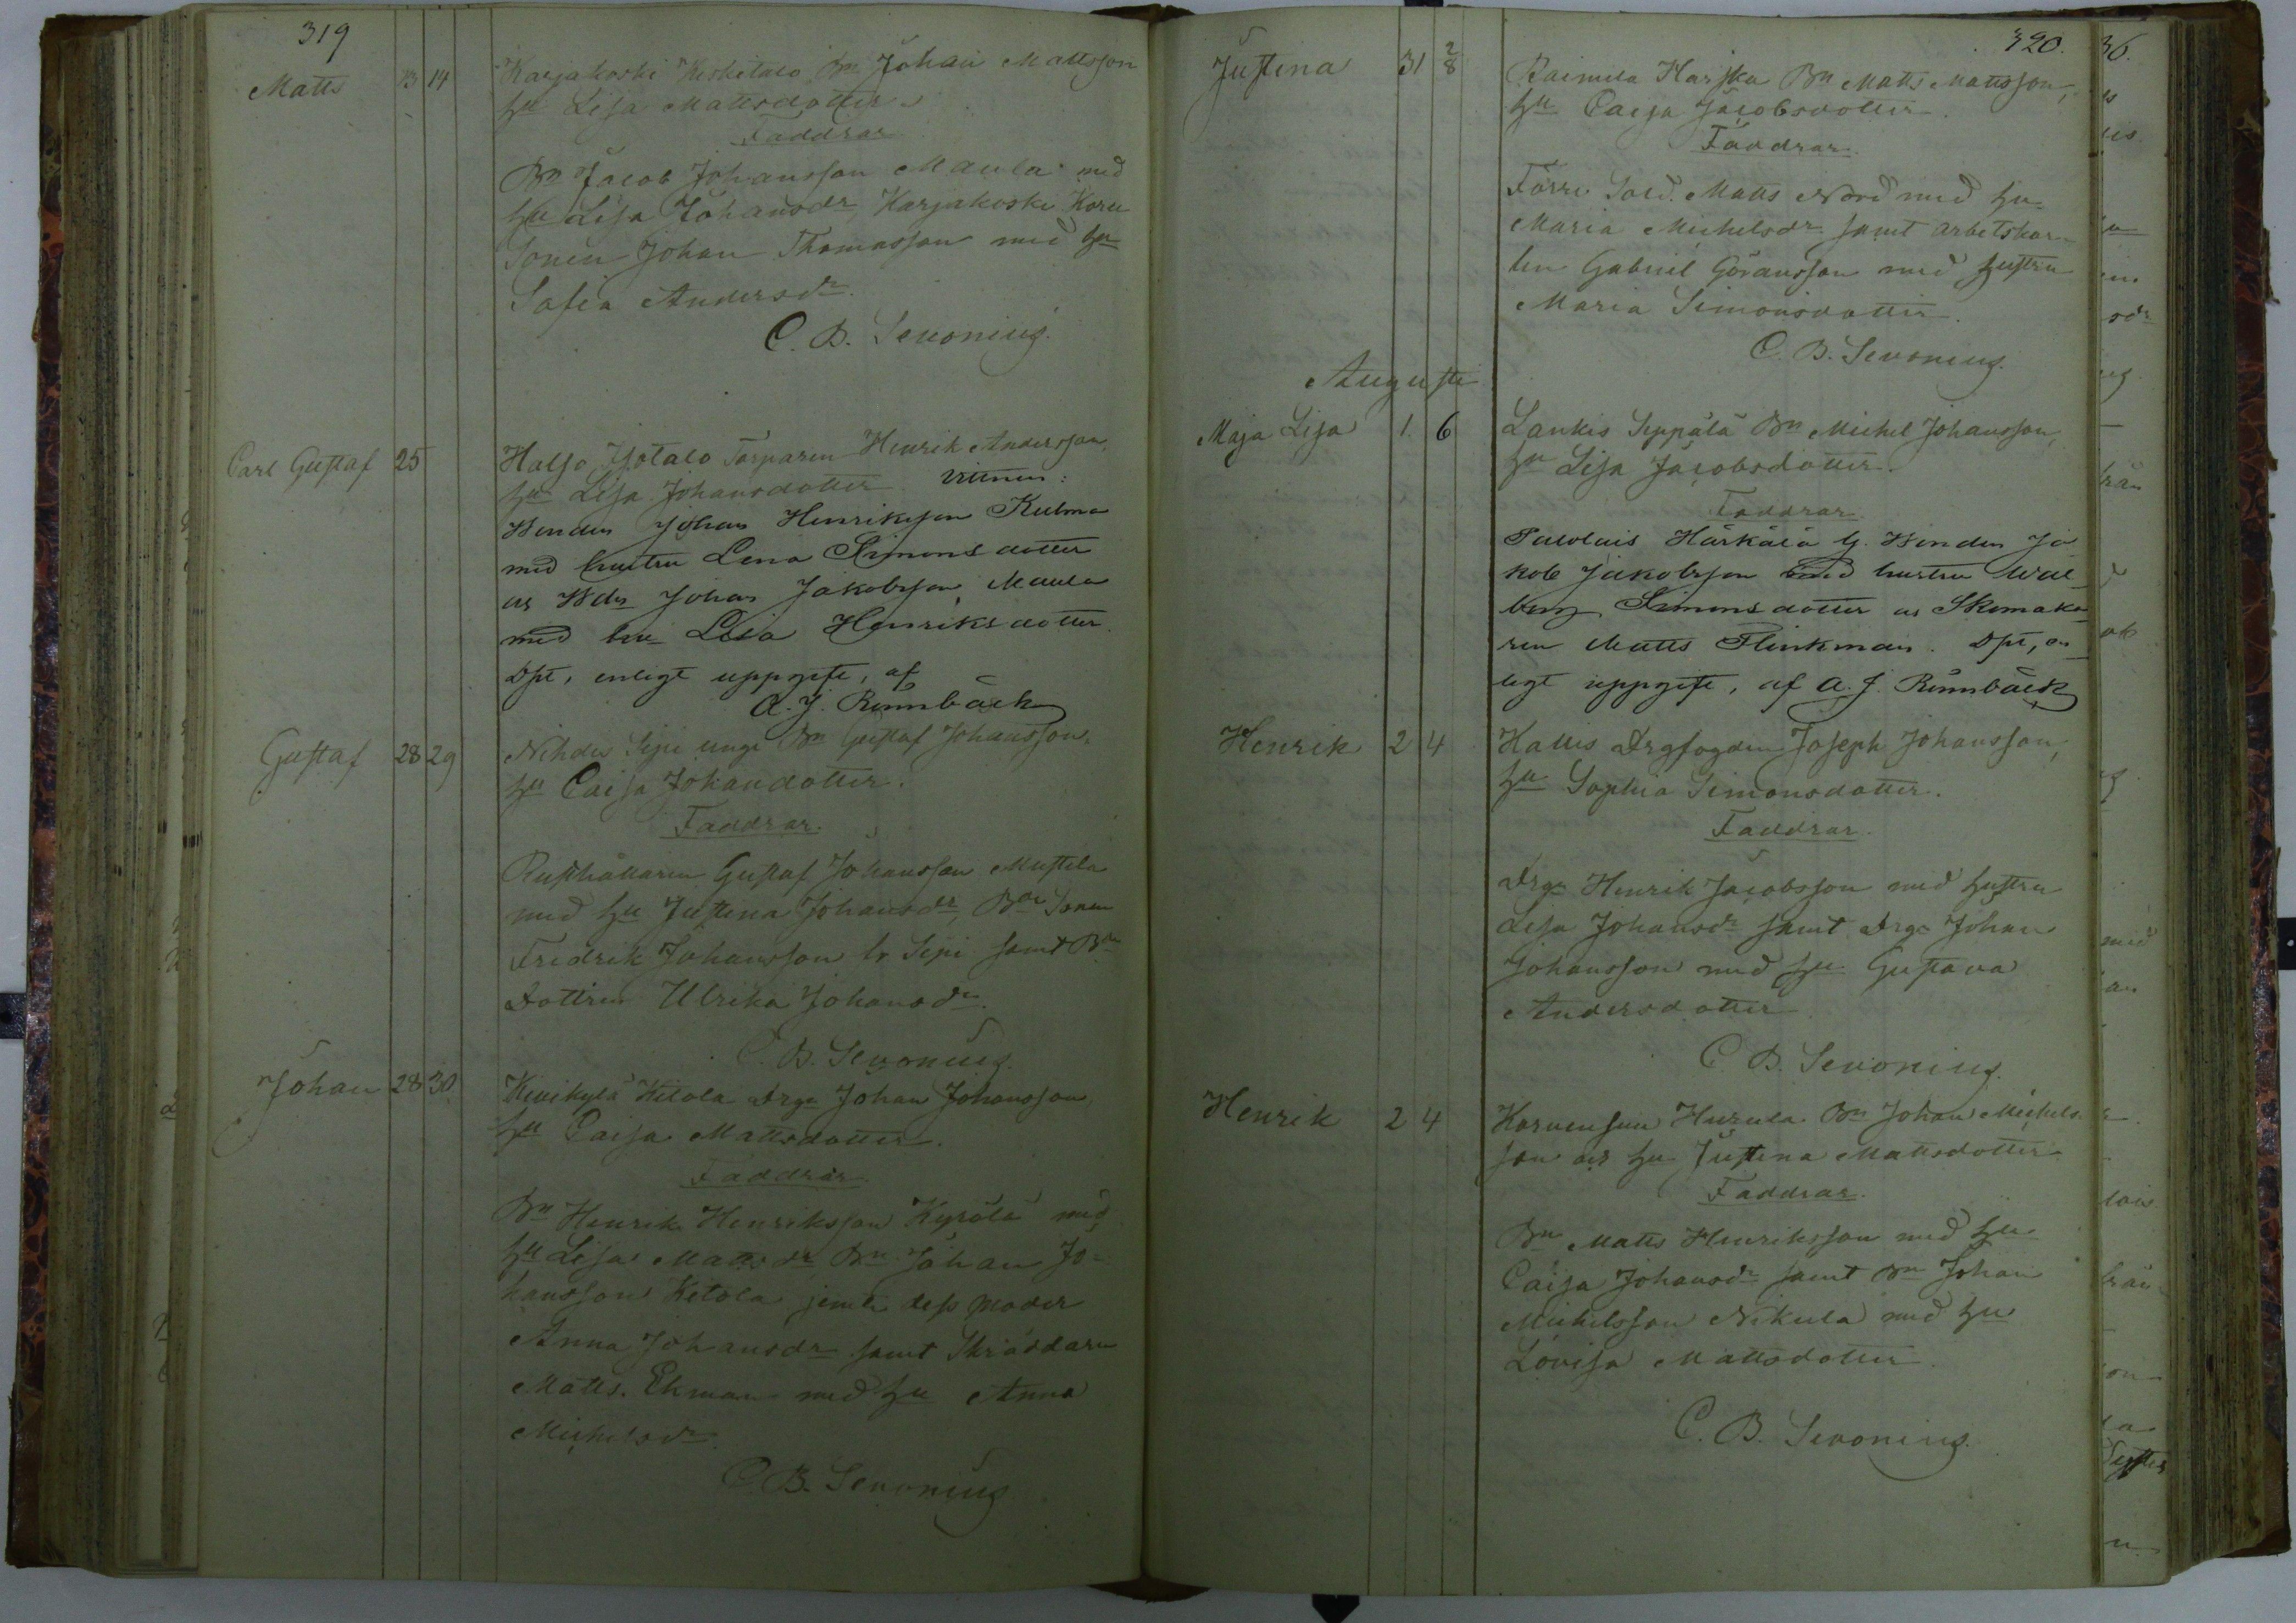 319
Matts 13 14 Karjakoski Keskitalo Bn Johan Mattsson
hu Lisa Mattsdotter
Faddrar
Bn Jacob Johansson Maula med
hu Lisa Johansdr, Karjakoski
Sonen Johan Thomasson med hu
Sofia Andersdr.
C. B. Sevonius.
Carl Gustaf 25 Halso Torparen Henrik Andersson
hu Lisa Johansdotter. Vittnen:
Bonden Johan Henriksson Kulma
med hustru Lena Simonsdotter
och Bdn Johan Jakobsson Maula
med hu Lisa Henriksdotter.
Dpt, enligt uppgift, af
A. J. Rönnbäck
Gustaf 28 29 Sipi unge Bn Gustaf Johansson,
hu Caisa Johansdotter.
Faddrar.
Rusthållaren Gustaf Johansson Mustila
med hu Justina Johansdr, Bde Sonen
Fredrik Johansson Sipi samt Bde
Dottren Ulrika Johansdr.
C. B. Sevonius.
Johan 28 30. Kivikylä Ketola Drgn Johan Johansson,
hu Caisa Mattsdotter.
Faddrar.
Bn Henrik Henriksson Kyrölä med
hu Lisa Mattsdr Bn Johan Jo-
hansson Ketola jemte dess moder
Anna Johansdr samt Skräddaren
Matts Ekman med hu Anna
Michelsdr.
C. B. Sevonius
320.
Justina 31 2/8 Raimela Harjka Bn Matts Mattsson,
hu Caisa Jacobsdotter.
Faddrar.
Förre Sold. Matts Nord med hu
Maria Michelsdr samt arbetskar-
len Gabriel Göransson med hustru
Maria Simonsdotter.
C. B. Sevonius.
Augusti
Maja Lisa 1. 6 Lankis Seppälä Bn Michel Johansson,
hu Lisa Jacobsdotter.
Faddrar.
Härkälä Bonden Ja
kob Jakobsson med hustru Wal
borg Simonsdotter och Skomaka
ren Matts Flinkman. Dpt, en
ligt uppgift, af A. J. Rönnbäck
Henrik 2 4 Kallis Drgfogden Joseph Johansson,
hu Sophia Simonsdotter.
Faddrar.
Drgn Henrik Jacobsson med hustru
Lisa Johansdr samt Drgn Johan
Johansson med hu Gustava
Andersdotter
C. B. Sevonius.
Henrik 2 4 Korvensuu Huzula Bn Johan Michels-
son och hu Justina Mattsdotter
Faddrar.
Bn Matts Henriksson med hu
Caisa Johansdr samt Bn Johan
Michelsson Nikula med hu
Lovisa Mattsdotter.
C. B. Sevonius.